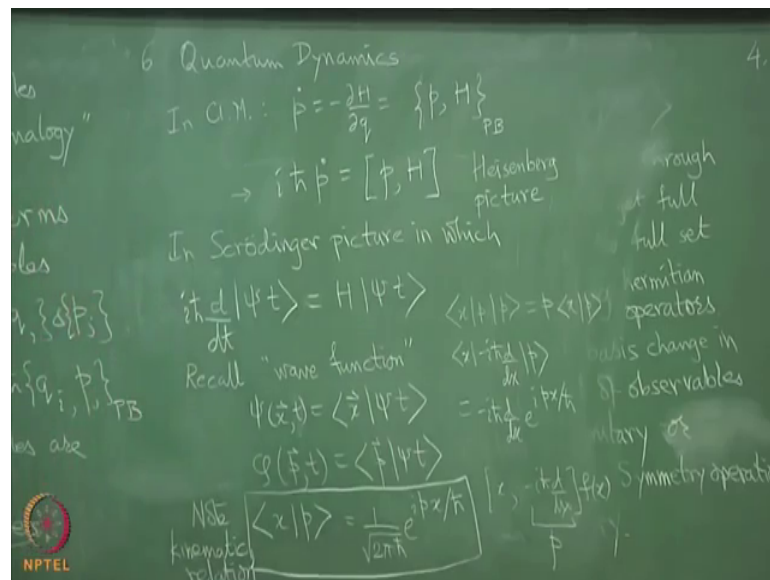 6 Quantum Dynamics
4.
In Cl.M.: ṗ = -∂H/∂q = {p, H}_PB
→ iħṗ = [p, H] Heisenberg
picture
In Scrödinger picture in which
iħ d/dt |Ψ t⟩ = H |Ψ t⟩
Recall "wave function"
Ψ(x⃗,t) = ⟨x⃗|Ψ t⟩
φ(p⃗,t) = ⟨p⃗|Ψ t⟩
Note
kinematic
relation
⟨x|p⟩ = 1/√2πħ e^{ipx/ħ}
⟨x|p|p⟩ = p⟨x|p⟩
⟨x|-iħ d/dx|p⟩
= -iħ d/dx e^{ipx/ħ}
[x, -iħ d/dx] f(x)
p
les
nalogy"
rms
les
q,}&{p;}
{q_i, p,}_PB
les are
hrough
get full
full set
hermitian
operators
basis change in
of observables
or
Symmetry operati
y.
NPTEL